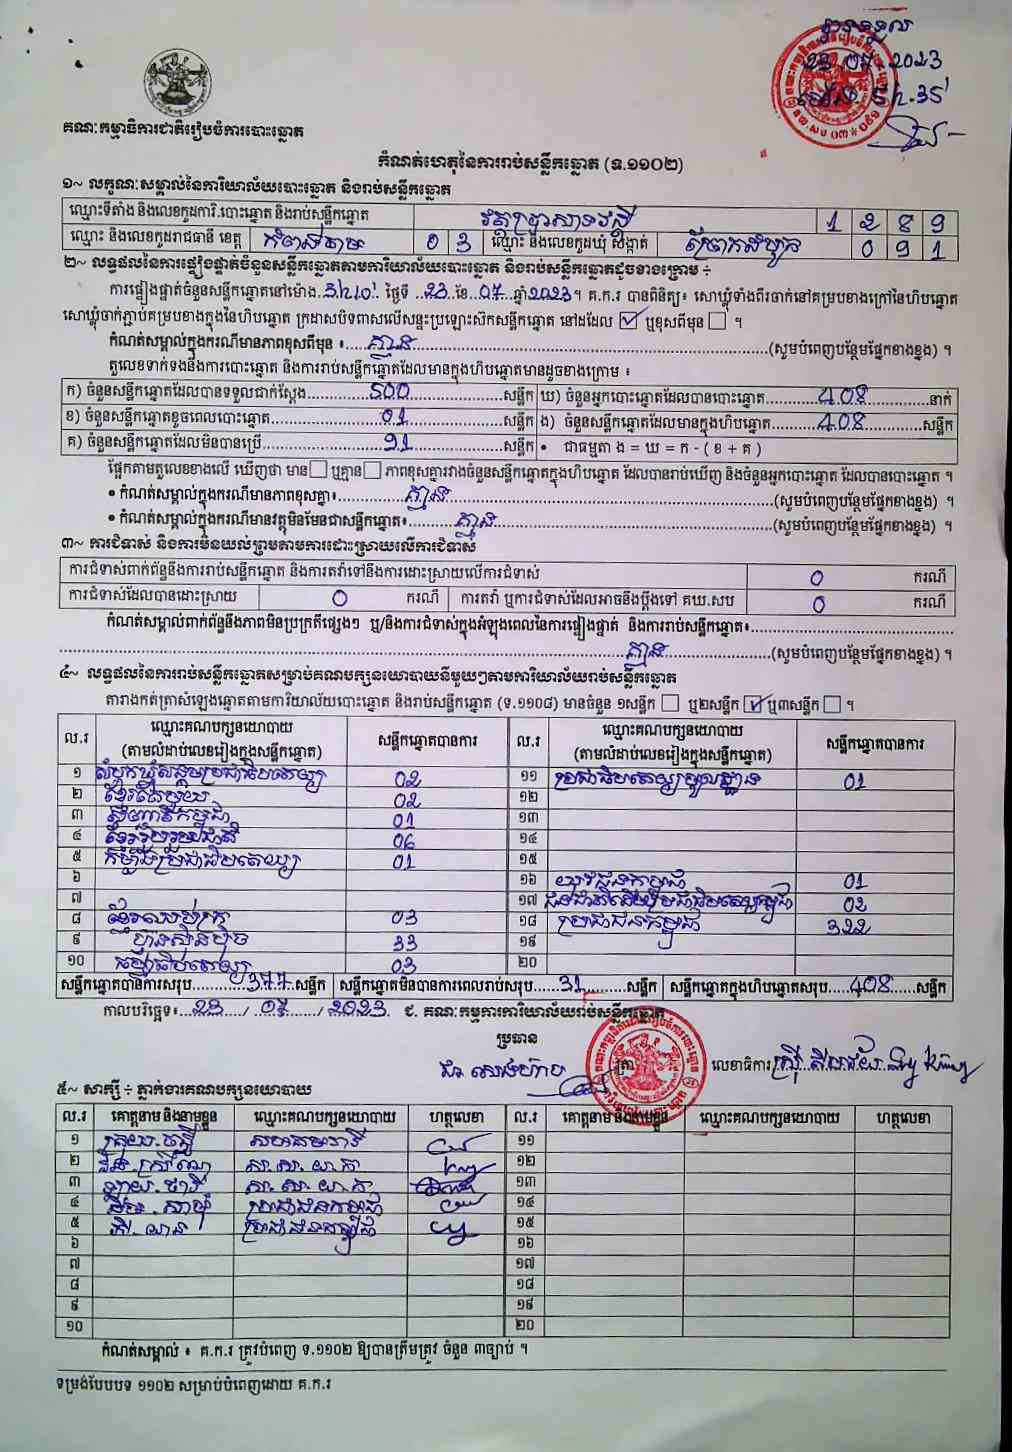 បានទទួល
23 07 2023
គណៈកម្មាធិការជាតិរៀបចំការបោះឆ្នោត
កំណត់ហេតុនៃការរាប់សន្លឹកឆ្នោត (ទ.១១០២)
១~ លក្ខណៈសម្គាល់នៃការិយាល័យបោះឆ្នោត និងរាប់សន្លឹកឆ្នោត
ឈ្មោះទីតាំង និងលេខកូដការិ.បោះឆ្នោត និងរាប់សន្លឹកឆ្នោត 1 2 8 9
ឈ្មោះ និងលេខកូដរាជធានី ខេត្ត កំពង់ចាម 0 3 ឈ្មោះ និងលេខកូដឃុំ សង្កាត់ 0 9 1
២~ លទ្ធផលនៃការផ្ទៀងផ្ទាត់ចំនួនសន្លឹកឆ្នោតតាមការិយាល័យបោះឆ្នោត និងរាប់សន្លឹកឆ្នោតដូចខាងក្រោម ÷
ការផ្ទៀងផ្ទាត់ចំនួនសន្លឹកឆ្នោតនៅម៉ោង 3h10' ថ្ងៃទី 23 ខែ 07 ឆ្នាំ 2023។ គ.ក.រ បានពិនិត្យ៖ សោឃ្លុំទាំងពីរចាក់នៅគម្របខាងក្រៅនៃហិបឆ្នោត
សោឃ្លុំចាក់ភ្ជាប់គម្របខាងក្នុងនៃហិបឆ្នោត ក្រដាសបិទពាសលើសន្ទះប្រឡោះស៊កសន្លឹកឆ្នោត នៅដដែល ☑ ឬខុសពីមុន ☐ ។
កំណត់សម្គាល់ក្នុងករណីមានភាពខុសពីមុន ៖ គ្មាន (សូមបំពេញបន្ថែមផ្នែកខាងខ្នង) ។
តួលេខទាក់ទងនឹងការបោះឆ្នោត និងការរាប់សន្លឹកឆ្នោតដែលមានក្នុងហិបឆ្នោតមានដូចខាងក្រោម ៖
ក) ចំនួនសន្លឹកឆ្នោតដែលបានទទួលជាក់ស្តែង 500 សន្លឹក ឃ) ចំនួនអ្នកបោះឆ្នោតដែលបានបោះឆ្នោត 408 នាក់
ខ) ចំនួនសន្លឹកឆ្នោតខូចពេលបោះឆ្នោត 01 សន្លឹក ង) ចំនួនសន្លឹកឆ្នោតដែលមានក្នុងហិបឆ្នោត 408 សន្លឹក
គ) ចំនួនសន្លឹកឆ្នោតដែលមិនបានប្រើ 91 សន្លឹក • ជាធម្មតា ង = ឃ = ក - ( ខ + គ )
ផ្អែកតាមតួលេខខាងលើ ឃើញថា មាន ☐ ឬគ្មាន ☐ ភាពខុសគ្នារវាងចំនួនសន្លឹកឆ្នោតក្នុងហិបឆ្នោត ដែលបានរាប់ឃើញ និងចំនួនអ្នកបោះឆ្នោត ដែលបានបោះឆ្នោត ។
• កំណត់សម្គាល់ក្នុងករណីមានភាពខុសគ្នា៖ គ្មាន (សូមបំពេញបន្ថែមផ្នែកខាងខ្នង) ។
• កំណត់សម្គាល់ក្នុងករណីមានវត្ថុមិនមែនជាសន្លឹកឆ្នោត៖ គ្មាន (សូមបំពេញបន្ថែមផ្នែកខាងខ្នង) ។
៣~ ការជំទាស់ និងការមិនយល់ព្រមតាមការដោះស្រាយលើការជំទាស់
ការជំទាស់ពាក់ព័ន្ធនឹងការរាប់សន្លឹកឆ្នោត និងការតវ៉ាទៅនឹងការដោះស្រាយលើការជំទាស់ 0 ករណី
ការជំទាស់ដែលបានដោះស្រាយ 0 ករណី ការតវ៉ា ឬការជំទាស់ដែលអាចនឹងប្តឹងទៅ គឃ.សប 0 ករណី
កំណត់សម្គាល់ពាក់ព័ន្ធនឹងភាពមិនប្រក្រតីផ្សេងៗ ឬ/និងការជំទាស់ក្នុងអំឡុងពេលនៃការផ្ទៀងផ្ទាត់ និងការរាប់សន្លឹកឆ្នោត៖
គ្មាន (សូមបំពេញបន្ថែមផ្នែកខាងខ្នង) ។
៤~ លទ្ធផលនៃការរាប់សន្លឹកឆ្នោតសម្រាប់គណបក្សនយោបាយនីមួយៗតាមការិយាល័យរាប់សន្លឹកឆ្នោត
តារាងកត់ត្រាសំឡេងឆ្នោតតាមការិយាល័យបោះឆ្នោត និងរាប់សន្លឹកឆ្នោត (ទ.១១០៨) មានចំនួន ១សន្លឹក ☐ ឬ២សន្លឹក ☑ ឬ៣សន្លឹក ☐ ។
ល.រ ឈ្មោះគណបក្សនយោបាយ (តាមលំដាប់លេខរៀងក្នុងសន្លឹកឆ្នោត) សន្លឹកឆ្នោតបានការ ល.រ ឈ្មោះគណបក្សនយោបាយ (តាមលំដាប់លេខរៀងក្នុងសន្លឹកឆ្នោត) សន្លឹកឆ្នោតបានការ
១ សំបុកឃ្មុំសង្គមប្រជាធិបតេយ្យ 02 ១១ ប្រជាធិបតេយ្យមូលដ្ឋាន 01
២ ខ្មែរតែមួយ 02 ១២
៣ ស៊ីញ៉ាតិកម្ពុជា 01 ១៣
៤ ខ្មែររួបរួមជាតិ 06 ១៤
៥ កម្លាំងប្រជាធិបតេយ្យ 01 ១៥
៦ ១៦ យុវជនកម្ពុជា 01
៧ ១៧ ជនជាតិដើមប្រជាធិបតេយ្យកម្ពុជា 02
៨ ខ្មែរឈប់ក្រ 03 ១៨ ប្រជាជនកម្ពុជា 322
៩ ហ៊្វុនស៊ិនប៉ិច 33 ១៩
១០ 03 ២០
សន្លឹកឆ្នោតបានការសរុប 377 សន្លឹក សន្លឹកឆ្នោតមិនបានការពេលរាប់សរុប 31 សន្លឹក សន្លឹកឆ្នោតក្នុងហិបឆ្នោតសរុប 408 សន្លឹក
កាលបរិច្ឆេទ៖ 23 / 07 / 2023 ជ. គណៈកម្មការការិយាល័យរាប់សន្លឹកឆ្នោត
ប្រធាន
ត្រា លេខាធិការ
៥~ សាក្សី ÷ ភ្នាក់ងារគណបក្សនយោបាយ
ល.រ គោត្តនាម និងនាមខ្លួន ឈ្មោះគណបក្សនយោបាយ ហត្ថលេខា ល.រ គោត្តនាម និងនាមខ្លួន ឈ្មោះគណបក្សនយោបាយ ហត្ថលេខា
១ ១១
២ ស.ស.យ.ក ១២
៣ ស.ស.យ.ក ១៣
៤ ប្រជាជនកម្ពុជា ១៤
៥ ប្រជាជនកម្ពុជា ១៥
៦ ១៦
៧ ១៧
៨ ១៨
៩ ១៩
១០ ២០
កំណត់សម្គាល់ ៖ គ.ក.រ ត្រូវបំពេញ ទ.១១០២ ឱ្យបានត្រឹមត្រូវ ចំនួន ៣ច្បាប់ ។
ទម្រង់បែបបទ ១១០២ សម្រាប់បំពេញដោយ គ.ក.រ